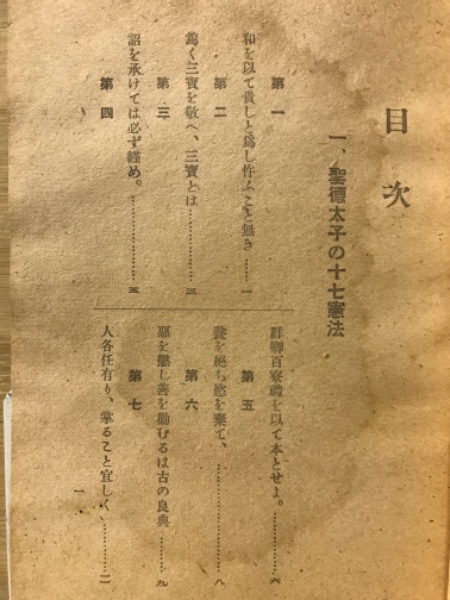 目次
一、聖德太子の十七憲法
第一
和を以て貴しと爲し忤ふこと無き……一
第二
篤く三寶を敬へ、三寶とは…………三
第三
詔を承けては必ず謹め。…………五
第四
群卿百寮禮を以て本とせよ。………六
第五
餮を絕ち慾を棄て、…………八
第六
惡を懲し善を勸むるは古の良典……九
第七
人各任有り、掌ること宜しく、………一一
一